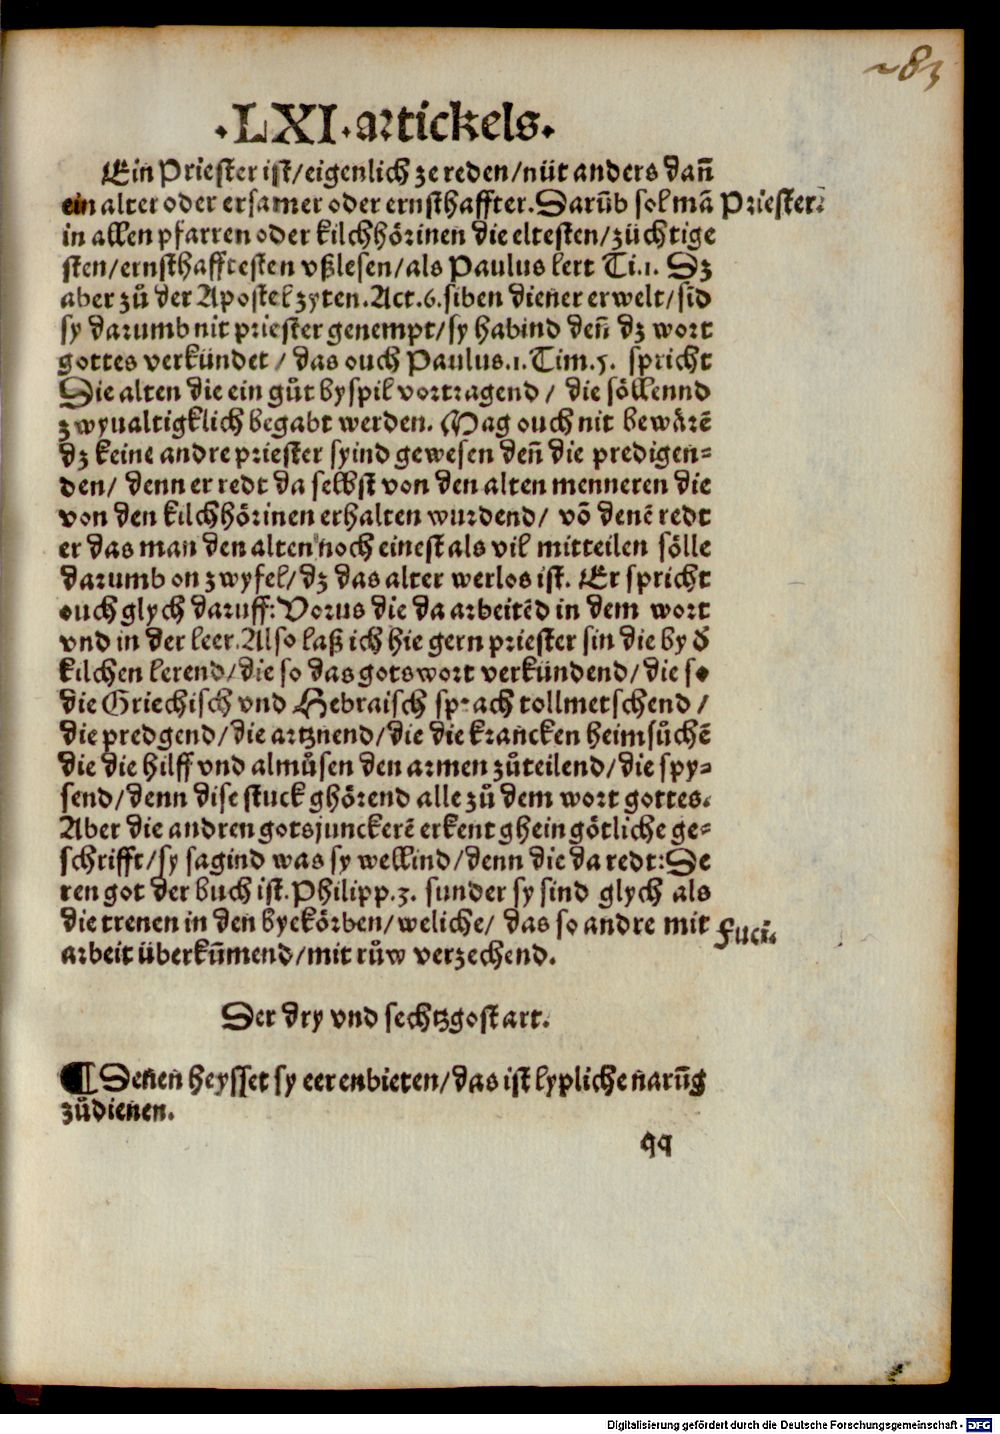 283
·LXI·artickels·
Ein Priester ist/eigenlich ze reden/nüt anders dañ
ein alter oder ersamer oder ernsthaffter.Darūb sol mā Priester.
in allen pfarren oder kilchhörinen die eltesten/züchtige
sten/ernsthafftesten vßlesen/als Paulus lert Ti.1. Dz
aber zů der Apostel zyten.Act.6.siben diener erwelt/sīd
sy darumb nit priester genempt/sy habind deñ dz wort
gottes verkündet / das ouch Paulus.1.Tim.5. spricht
Die alten die ein gůt byspil vortragend / die söllennd
zwyualtigklich begabt werden. Mag ouch nit bewärē
dz keine andre priester syind gewesen deñ die predigen⸗
den/ denn er redt da selbst von den alten menneren die
von den kilchhörinen erhalten wurdend/ vō denē redt
er das man den alten noch einest als vil mitteilen sölle
darumb on zwyfel/dz das alter werlos ist. Er spricht
ouch glych daruff:Vorus die da arbeitēd in dem wort
vnd in der leer.Also laß ich hie gern priester sin die by d̄
kilchen lerend/die so das gotswort verkündend/die so
die Griechisch vnd Hebraisch sprach tollmetschend /
die predgend/die artznend/die die krancken heimsůchē
die die hilff vnd almůsen den armen zůteilend/die spy⸗
send/denn dise stuck ghörend alle zů dem wort gottes.
Aber die andren gotsjunckerē erkent ghein götliche ge⸗
schrifft/sy sagind was sy wellind/denn die da redt:De
ren got der buch ist.Philipp.3. sunder sy sind glych als
die trenen in den byekörben/weliche/ das so andre mit Fuci.
arbeit überkum̄end/mit růw verzechend.
Der dry vnd sechtzgost art.
¶ Denen heysset sy eer enbieten/das ist lypliche narūg
zůdienen.
qq
Digitalisierung gefördert durch die Deutsche Forschungsgemeinschaft - DFG